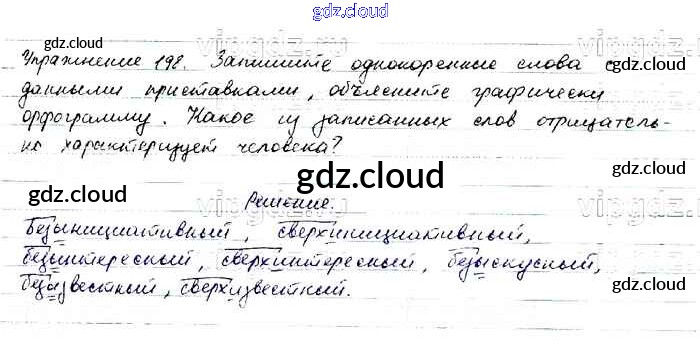 gdz.cloud
gdz.cloud vipgdz.net
Упражнение 198. Запишите однокоренные слова с
gdz.cloud
данными приставками, объясните графически
gdz.cloud gdz.cloud
орфограмму. Какое из записанных слов отрицатель-
но характеризует человека?
gdz.cloud
gdz.cloud gdz.cloud
Решение.
vipgdz.net
безынициативный, сверхинициативный,
безынтересный, сверхинтересный, безыскусный,
gdz.cloud gdz.cloud
безызвестный, сверхизвестный.
gdz.cloud